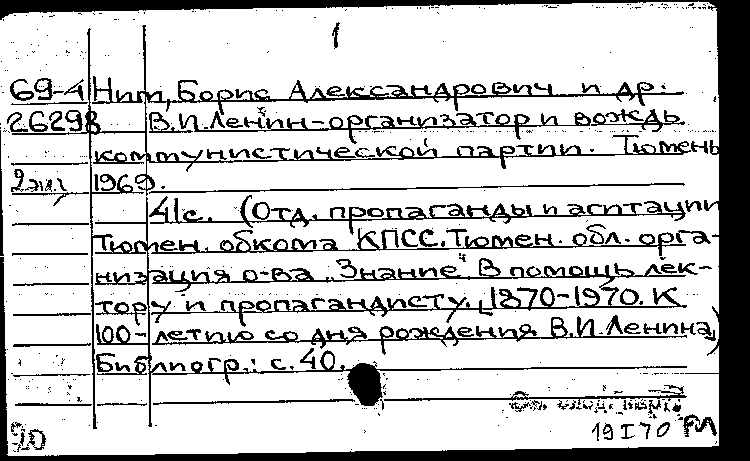 1
69-4 Нит, Борис Александрович и др.
26298 В.И.Ленин-организатор и вождь
коммунистической партии. Тюмень
2 экз. 1969.
41с. (Отд. пропаганды и агитации
Тюмен. обкома КПСС. Тюмен. обл. орга-
низация о-ва „Знание“ В помощь лек-
тору и пропагандисту. 1870-1970. К
100-летию со дня рождения В.И.Ленина)
Библиогр.: с. 40.
См. след. карт.
90 19 I 70